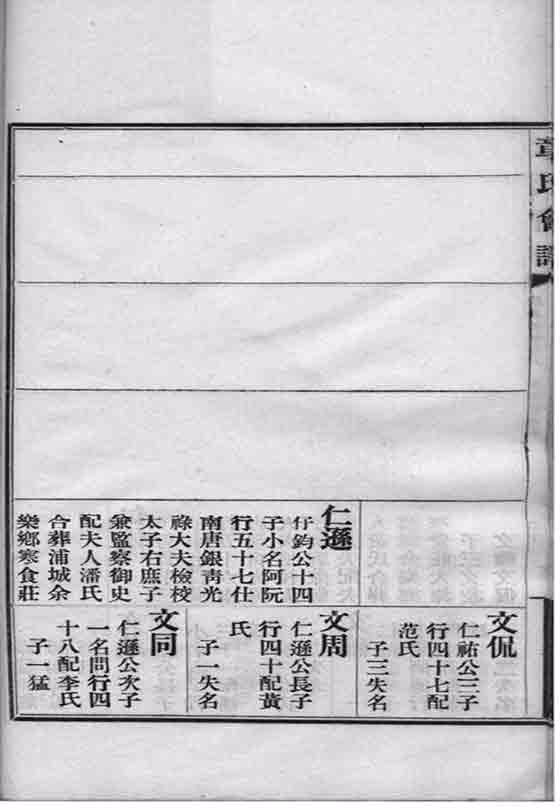 章氏會譜
仁遜
仔鈞公十四
子小名阿阮
行五十七仕
南唐銀青光
祿大夫檢校
太子右庶子
兼監察御史
配夫人潘氏
合葬浦城余
樂鄉寒食莊
文侃
仁祐公三子
行四十七配
范氏
子三失名
文周
仁遜公長子
行四十配黃
氏
子一失名
文同
仁遜公次子
一名問行四
十八配李氏
子一猛